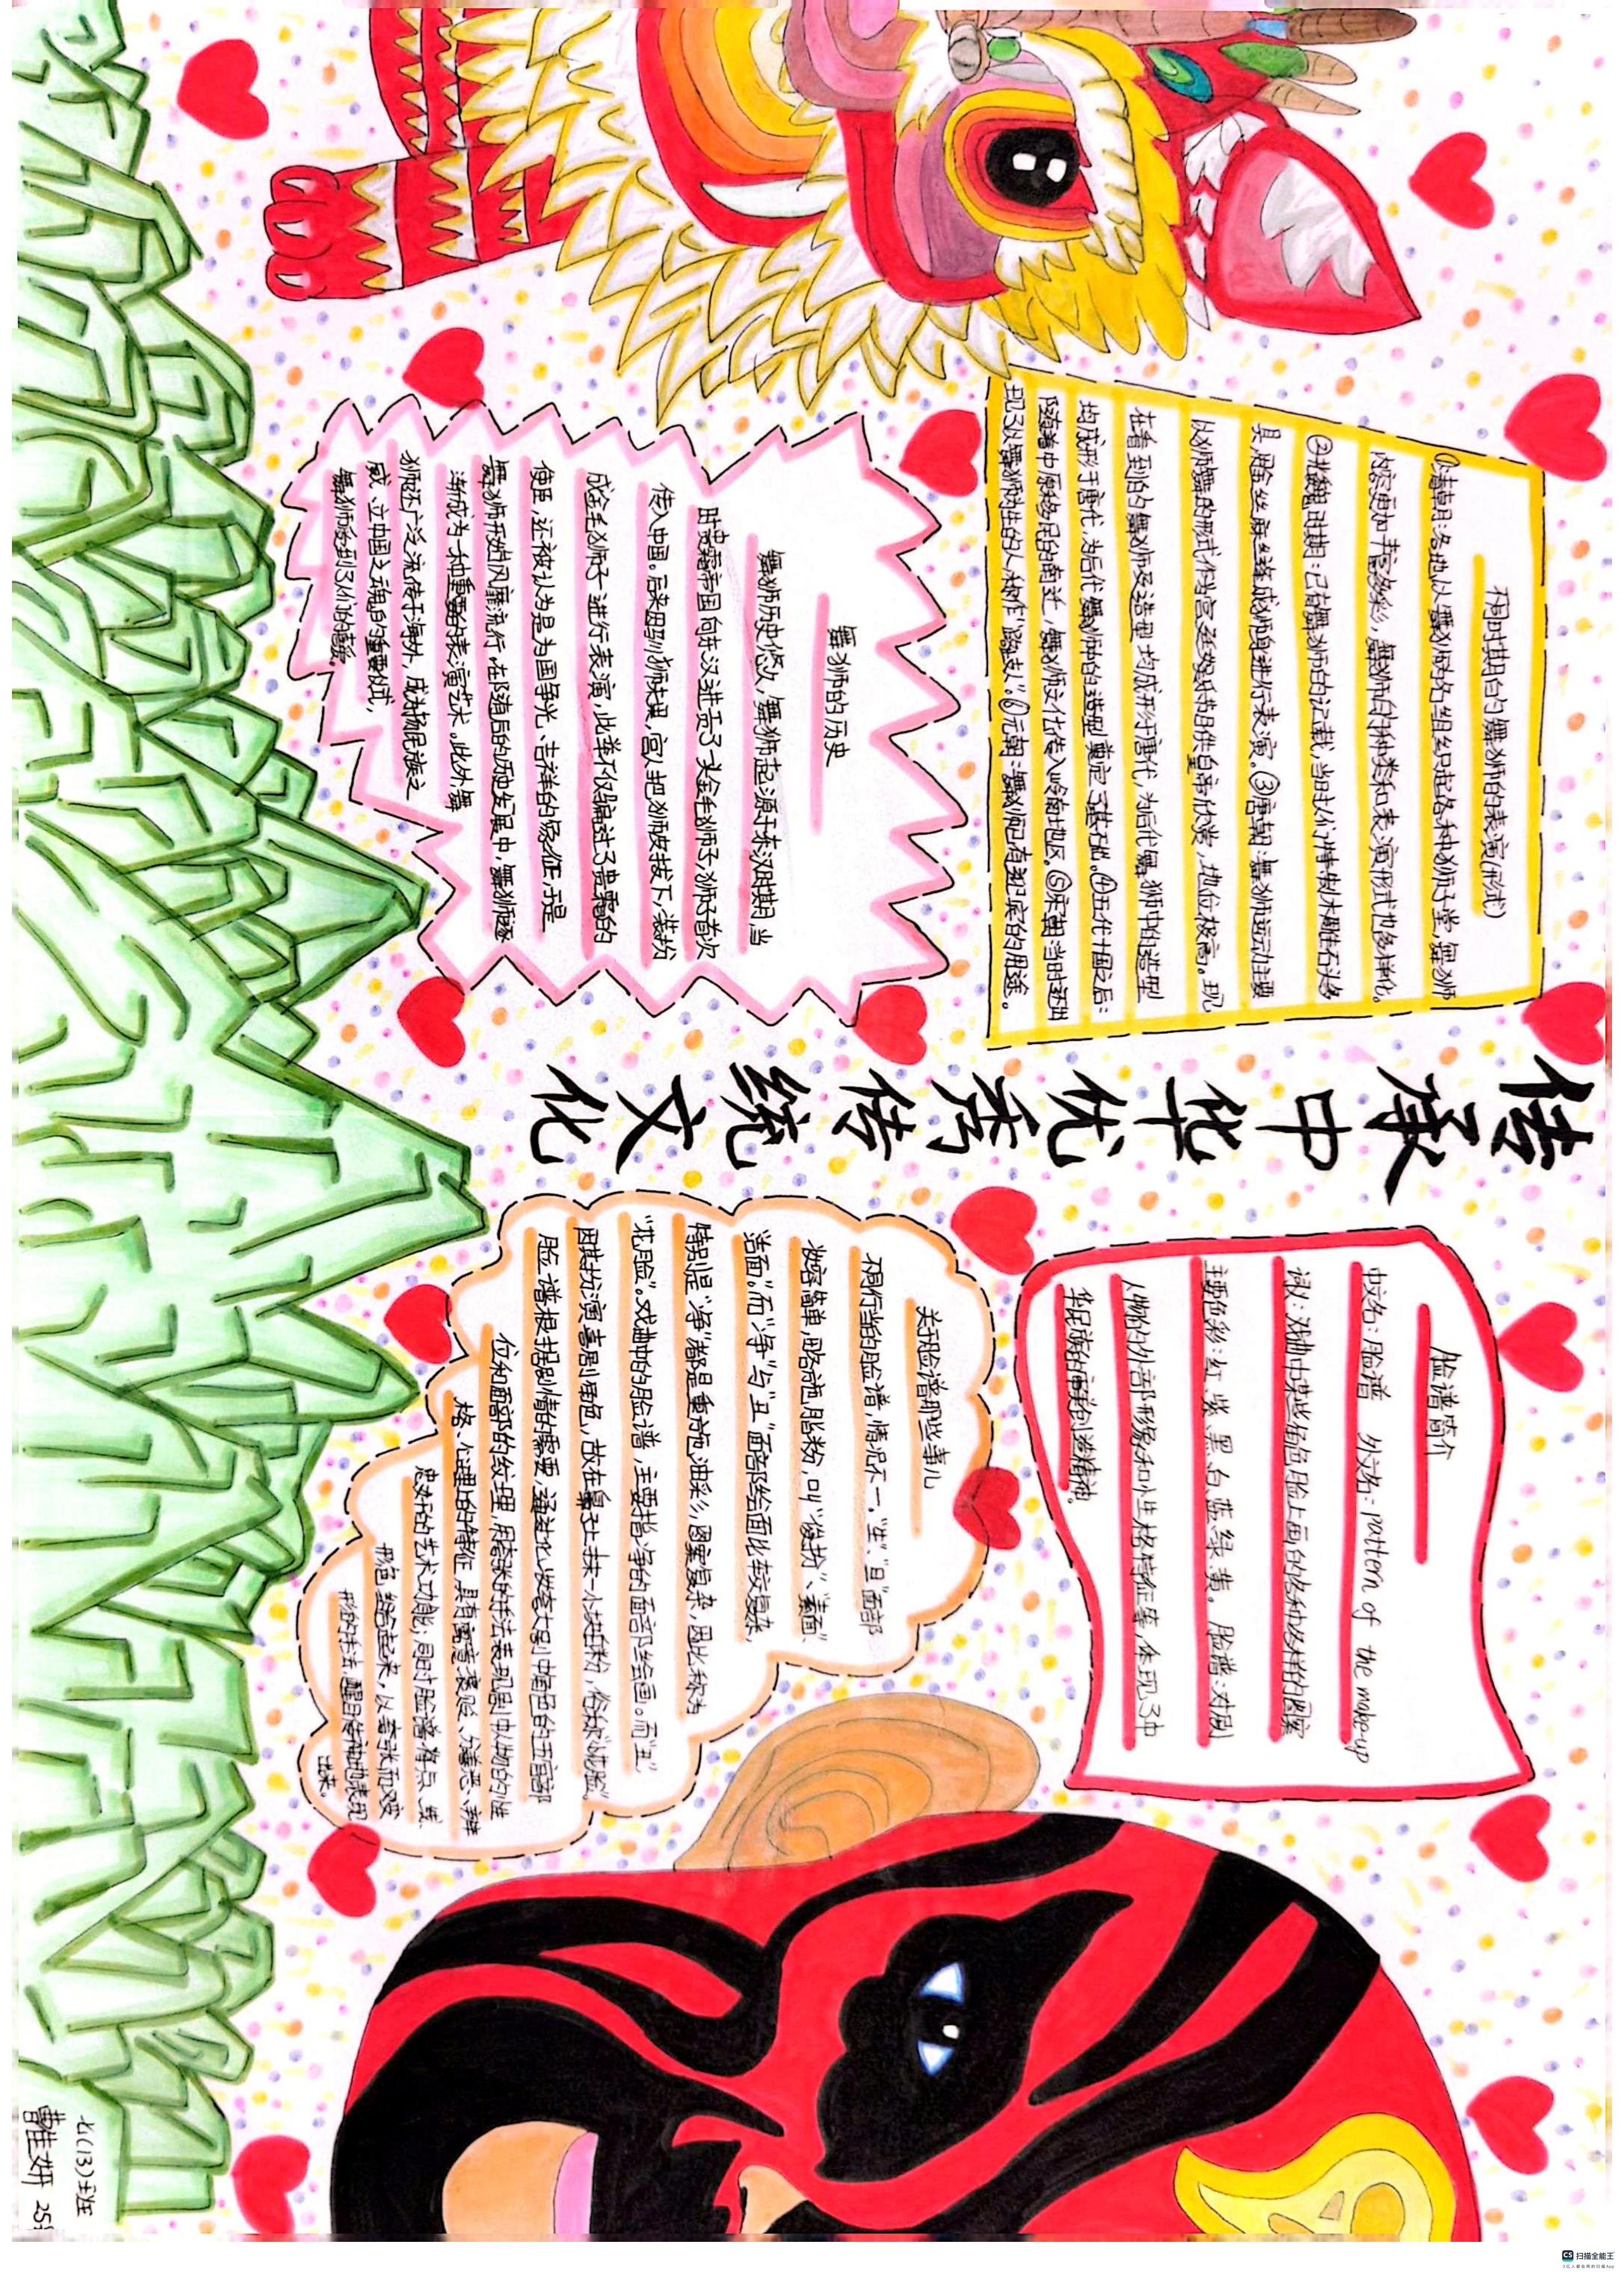 传承中华优秀传统文化
不同时期的舞狮的表演(形式)
①清朝:各地以舞狮闻名组织起各种狮子堂,舞狮
内容更加丰富多彩,舞狮的种类和表演形式也多样化。
②北魏时期:已有舞狮的记载,当时士人们特制木雕石头多
具,用金丝麻丝缝成狮身进行表演。③唐朝:舞狮运动主要
以狮舞的形式作为宫廷娱乐节目供皇帝欣赏,地位极高。现
在看到的舞狮及造型均成形于唐代,为后代舞狮中的造型
均成形于唐代,为后代舞狮的造型奠定了基础。④五代十国之后:
随着中原移民的南迁,舞狮文化传入岭南地区。⑤宋朝:当时还出
现了以舞狮为生的人,称作"路岐人"。⑥元朝:舞狮已有迎宾的用途。
舞狮的历史
舞狮历史悠久,舞狮起源于东汉时期,当
时贵霜帝国向东汉进贡了一头金毛狮子,狮子首次
传入中国。后来因驯狮未果,宫人把狮皮拔下,装扮
成金毛狮子进行表演,此举不仅骗过了贵霜的
使臣,还被认为是为国争光、吉祥的象征,于是
舞狮开始风靡流行。在随后的历史发展中,舞狮逐
渐成为一种重要的表演艺术。此外,舞
狮还广泛流传于海外,成为扬民族之
威、立中国之魂的重要仪式,
舞狮受到了人们的喜爱。
脸谱简介
中文名:脸谱 外文名:pattern of the make-up
词义:戏曲中某些角色脸上画的各种各样的图案
主要色彩:红、紫、黑、白、蓝、绿、黄。脸谱:对
人物的外部形象和性格特征等,体现了中
华民族的审美创造精神。
关于脸谱那些事儿
不同行当的脸谱,情况不一。"生"、"旦"面部
妆容简单,略施脂粉,叫"俊扮"、"素面"、
"洁面"。而"净"与"丑"面部绘画比较复杂,
特别是"净",都是重施油彩,图案复杂,因此称为
"花脸"。戏曲中的脸谱,主要指净的面部绘画。而"丑"
因其扮演喜剧角色,故在鼻子上抹一小块白粉,俗称"小花脸"。
脸谱根据剧情的需要,通过化妆夸大剧中角色的五官部
位和面部的纹理,用夸张的手法表现剧中人物的性
格、心理上的特征,具有寓褒贬、分善恶、辨
忠奸的艺术功能,同时脸谱将点、线、
形、色组合起来,以夸张而变
形的手法,醒目传神地表现
出来。
七(13)班
曹佳妍 25号
CS 扫描全能王